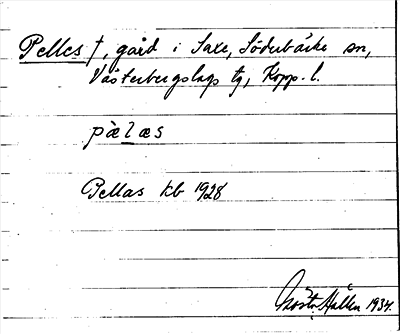 Pelles †, gård i Saxe, Söderbärke sn,
Västerbergslags tg, Kopp. l.
pàlæs
Pellas kb 1928
Gösta Hallén 1934.